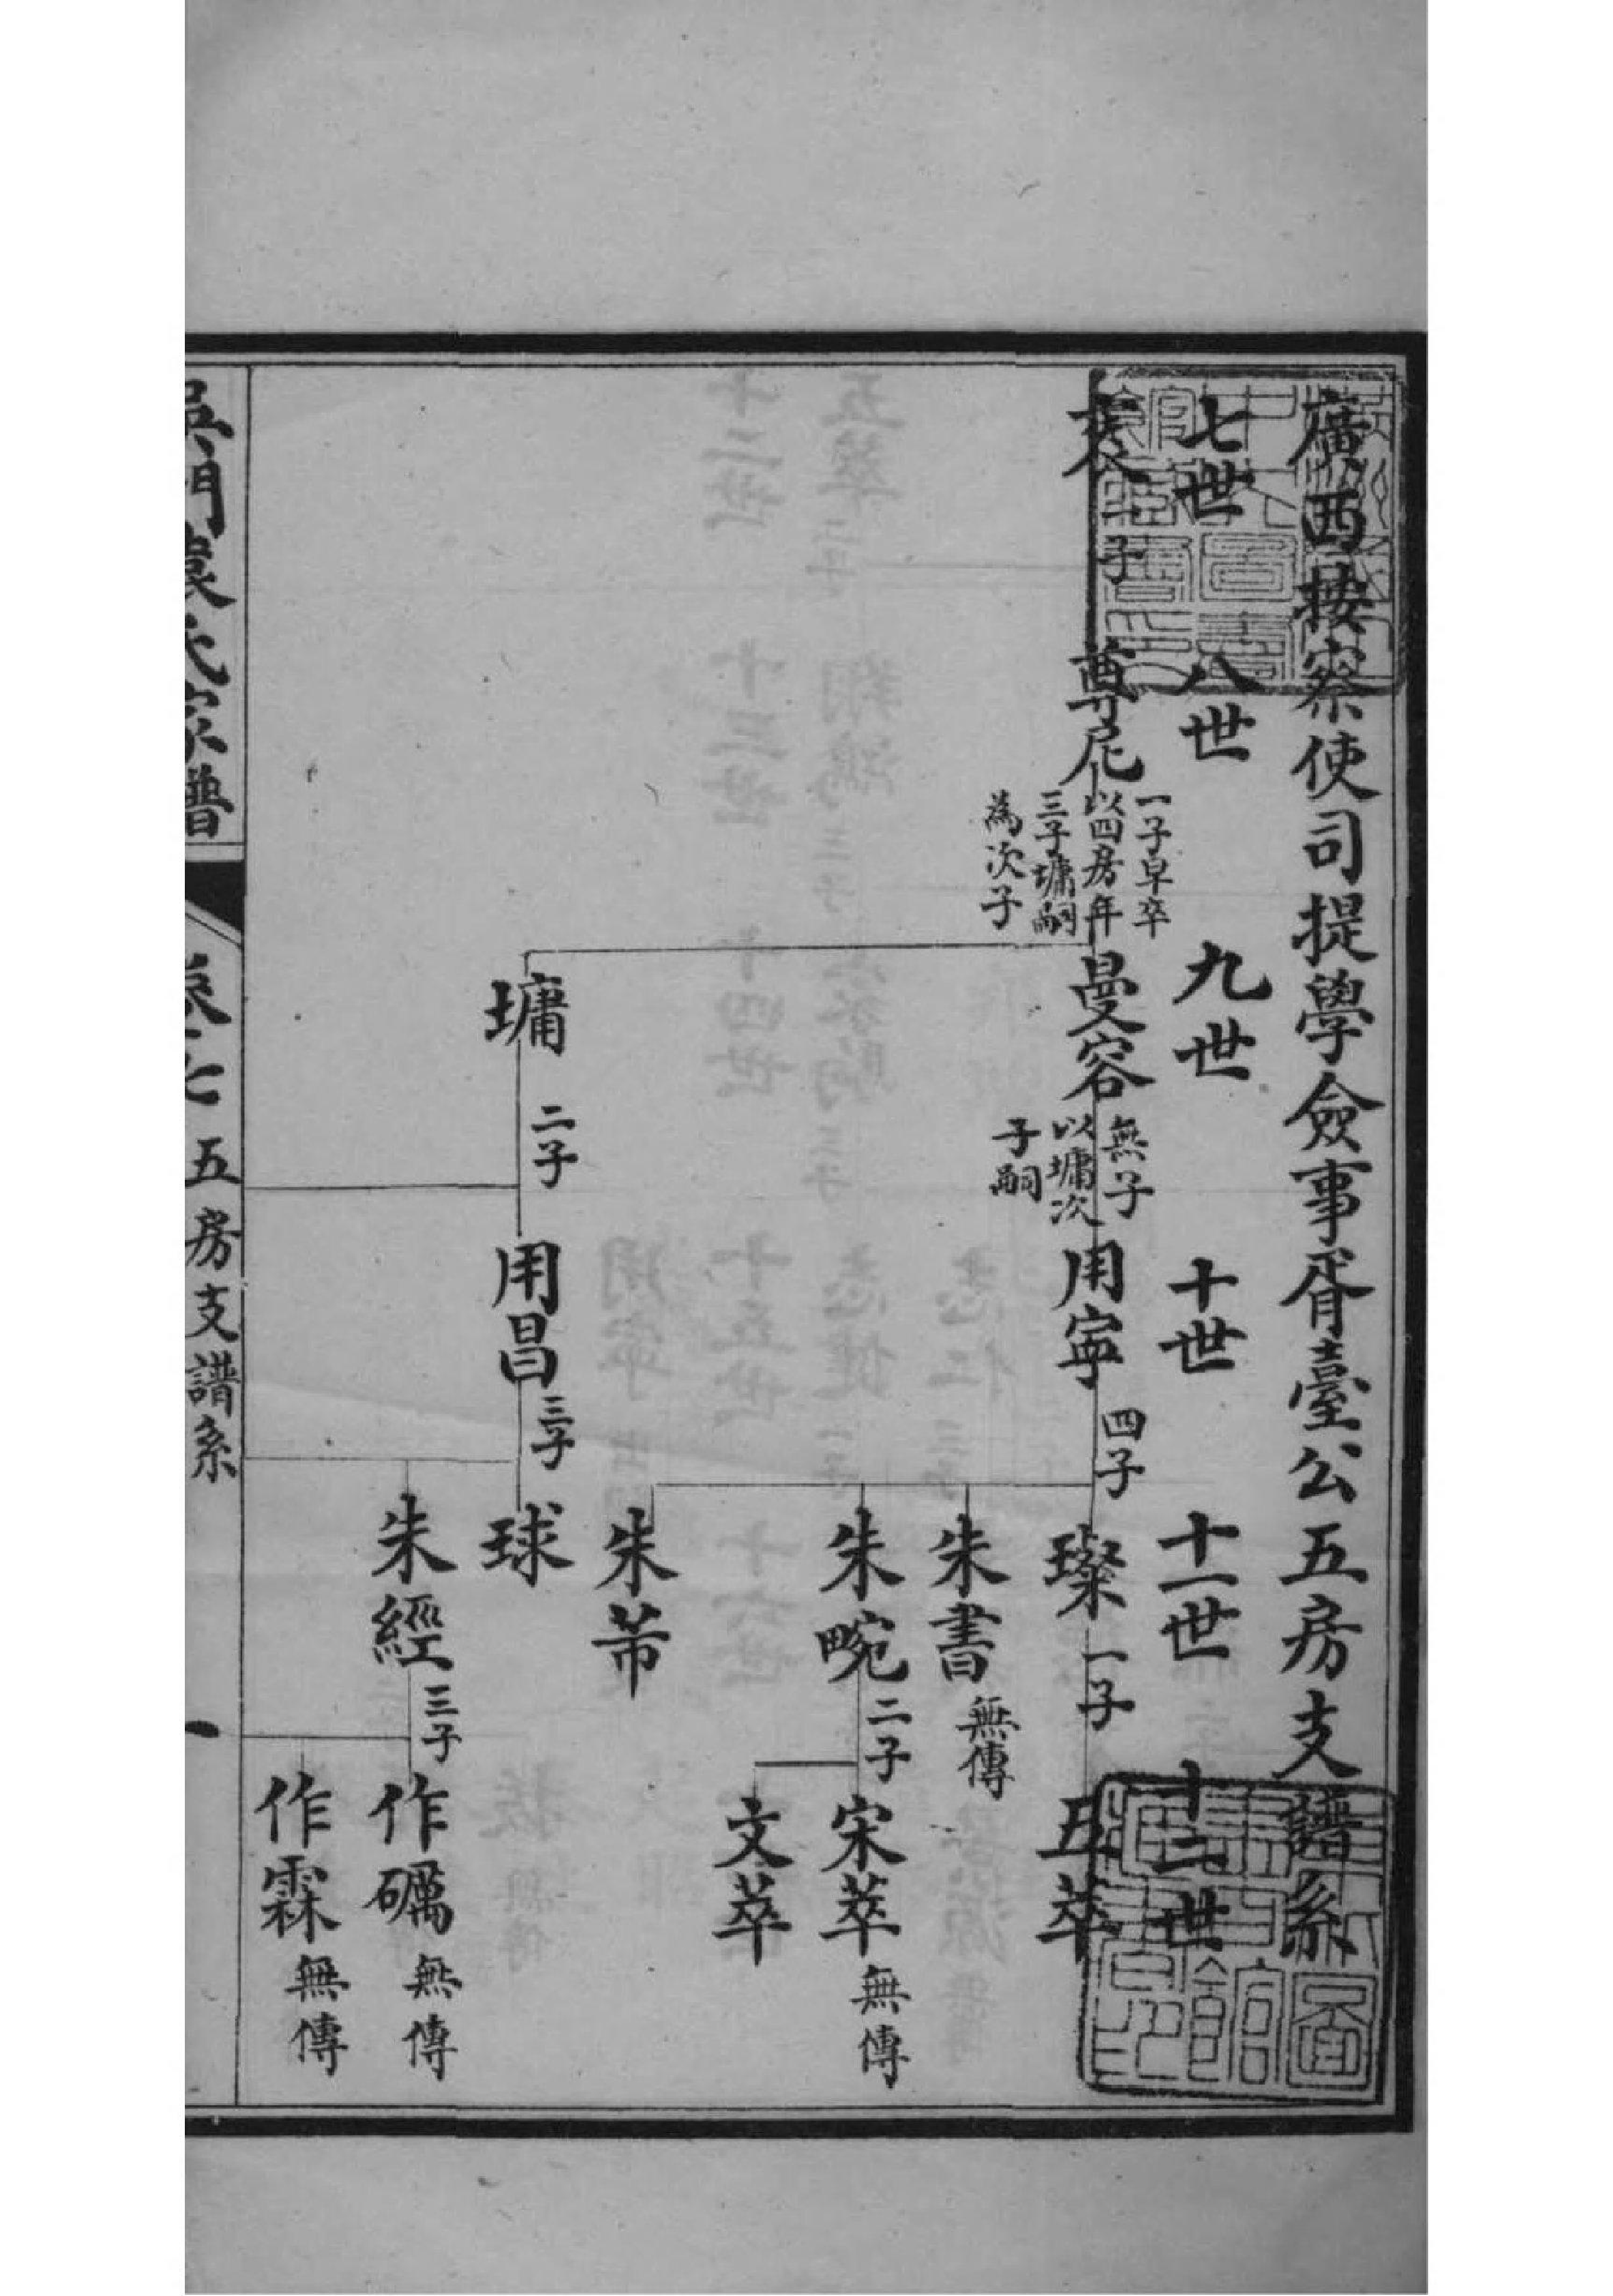 廣西按察使司提學僉事胥臺公五房支譜系
七世
八世
九世
十世
十一世
十二世
袠
一子
尊尼
一子早卒
以四房年
三子墉嗣
為次子
曼容
無子
以墉次
子嗣
用寧
四子
璨
一子
五萃
朱書
無傳
朱畹
二子
宋萃
無傳
文萃
朱芾
墉
二子
用昌
三子
球
朱經
三子
作礪
無傳
作霖
無傳
吳門袁氏家譜
卷七
五房支譜系
一